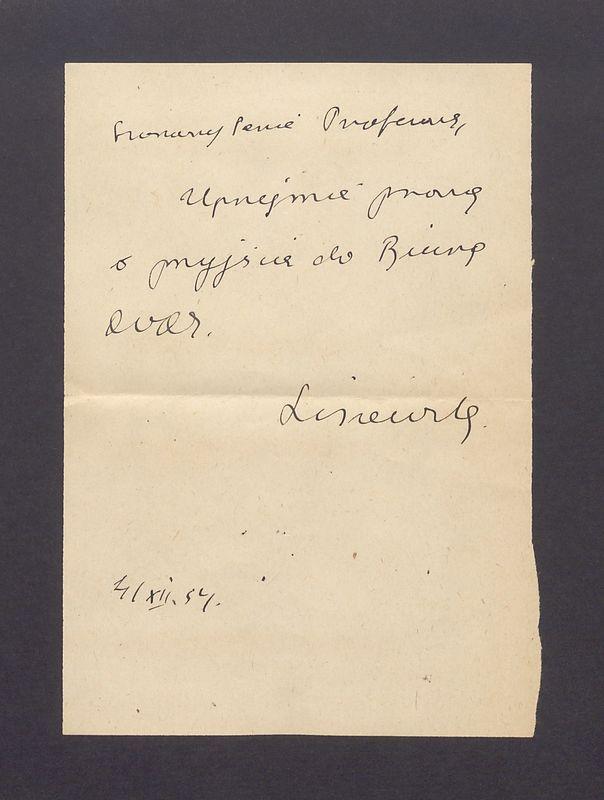 Szanowny Panie Profesorze,
Uprzejmie proszę
o przyjście do Biura
zaraz.
4/XII.54.